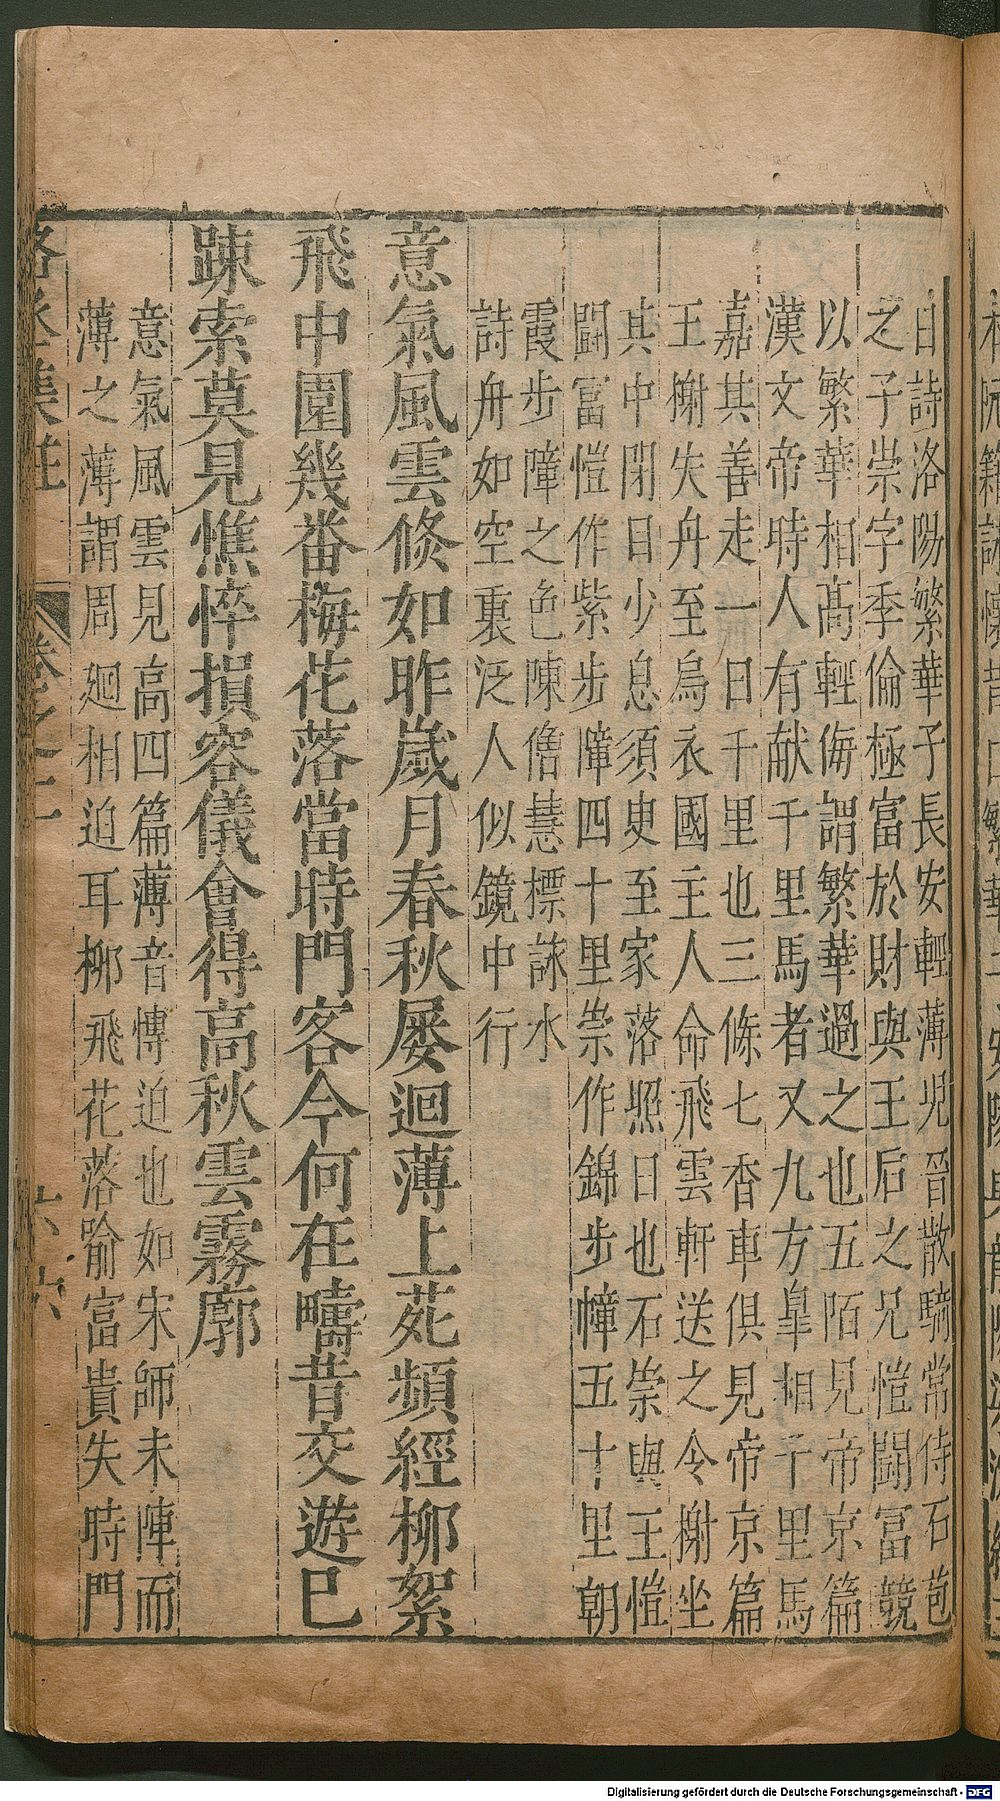 日詩洛陽繁華子長安輕薄児晉散騎常侍石苞
之子崇字季倫極富於財與王后之兄愷鬭冨競
以繁華相髙輕侮謂繁華過之也五陌見帝京篇
漢文帝時人有献千里馬者又九方皐相千里馬
嘉其善走一日千里也三條七香車俱見帝京篇
王榭失舟至烏衣國主人命飛雲軒送之令榭坐
其中閉目少息須臾至家落照日也石崇與王愷
鬭冨愷作紫步障四十里崇作錦步幛五十里朝
霞步障之色陳僑慧標詠水
詩舟如空裏泛人似鏡中行
意氣風雲倐如昨歲月春秋屡迴薄上苑頻經柳絮
飛中園幾番梅花落當時門客今何在疇昔交遊已
踈索莫見憔悴損容儀會得高秋雲霧廓
意氣風雲見高四篇薄音愽迫也如宋師未陣而
薄之薄謂周廻相迫耳柳飛花落喻富貴失時門
卷之二
六
Digitalisierung gefördert durch die Deutsche Forschungsgemeinschaft - DFG